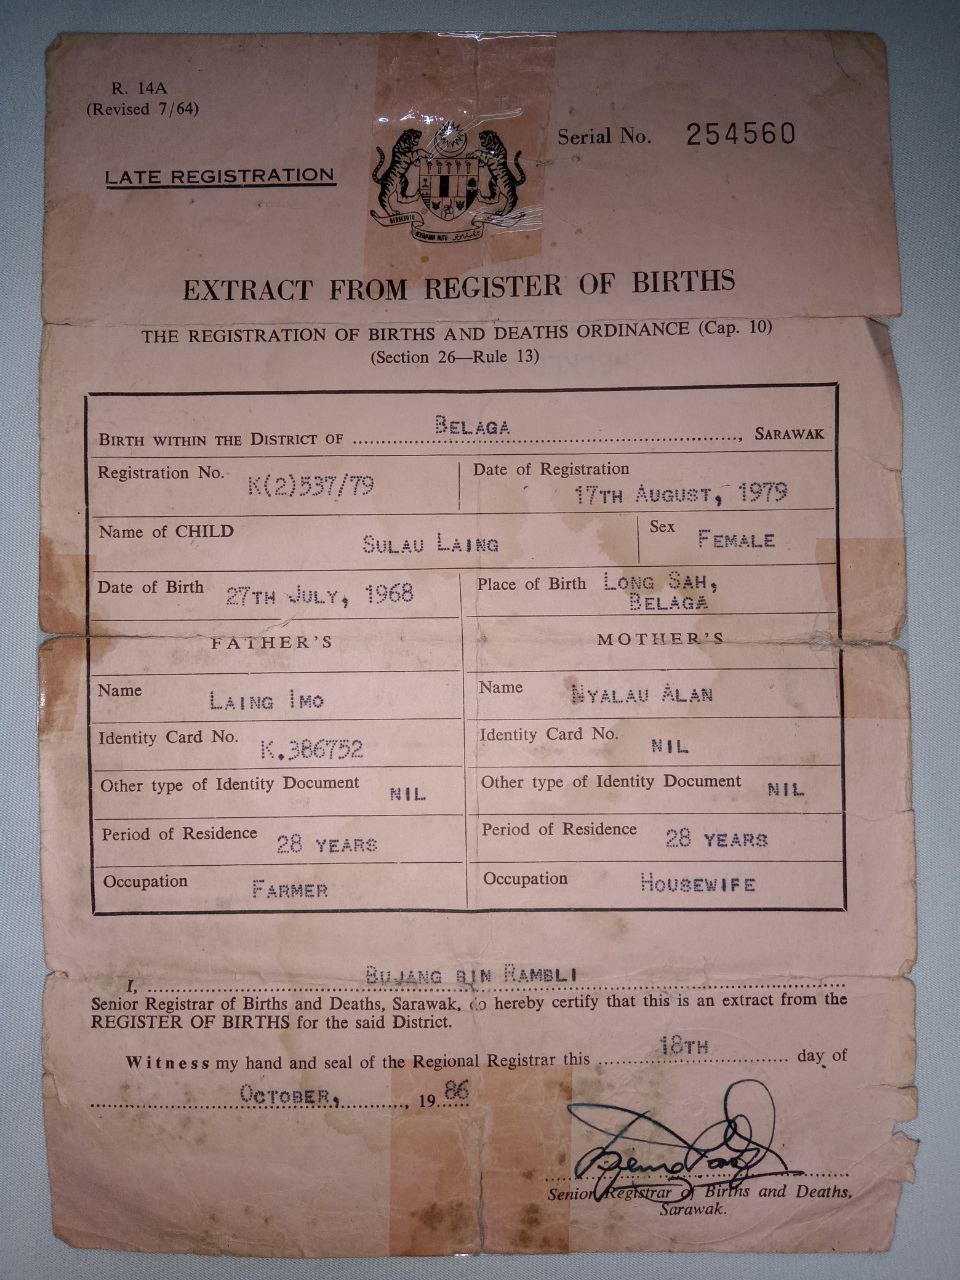 R. 14A
(Revised 7/64)
Serial No. 254560
LATE REGISTRATION
BERSEKUTU BERTAMBAH MUTU
EXTRACT FROM REGISTER OF BIRTHS
THE REGISTRATION OF BIRTHS AND DEATHS ORDINANCE (Cap. 10)
(Section 26—Rule 13)
BIRTH WITHIN THE DISTRICT OF BELAGA, SARAWAK
Registration No. K(2)537/79 Date of Registration 17TH AUGUST, 1979
Name of CHILD SULAU LAING Sex FEMALE
Date of Birth 27TH JULY, 1968 Place of Birth LONG SAH,
BELAGA
FATHER'S MOTHER'S
Name LAING IMO Name NYALAU ALAN
Identity Card No. K.386752 Identity Card No. NIL
Other type of Identity Document NIL Other type of Identity Document NIL
Period of Residence 28 YEARS Period of Residence 28 YEARS
Occupation FARMER Occupation HOUSEWIFE
I, BUJANG BIN RAMBLI
Senior Registrar of Births and Deaths, Sarawak, do hereby certify that this is an extract from the
REGISTER OF BIRTHS for the said District.
Witness my hand and seal of the Regional Registrar this 18TH day of
OCTOBER, 1986
Senior Registrar of Births and Deaths,
Sarawak.